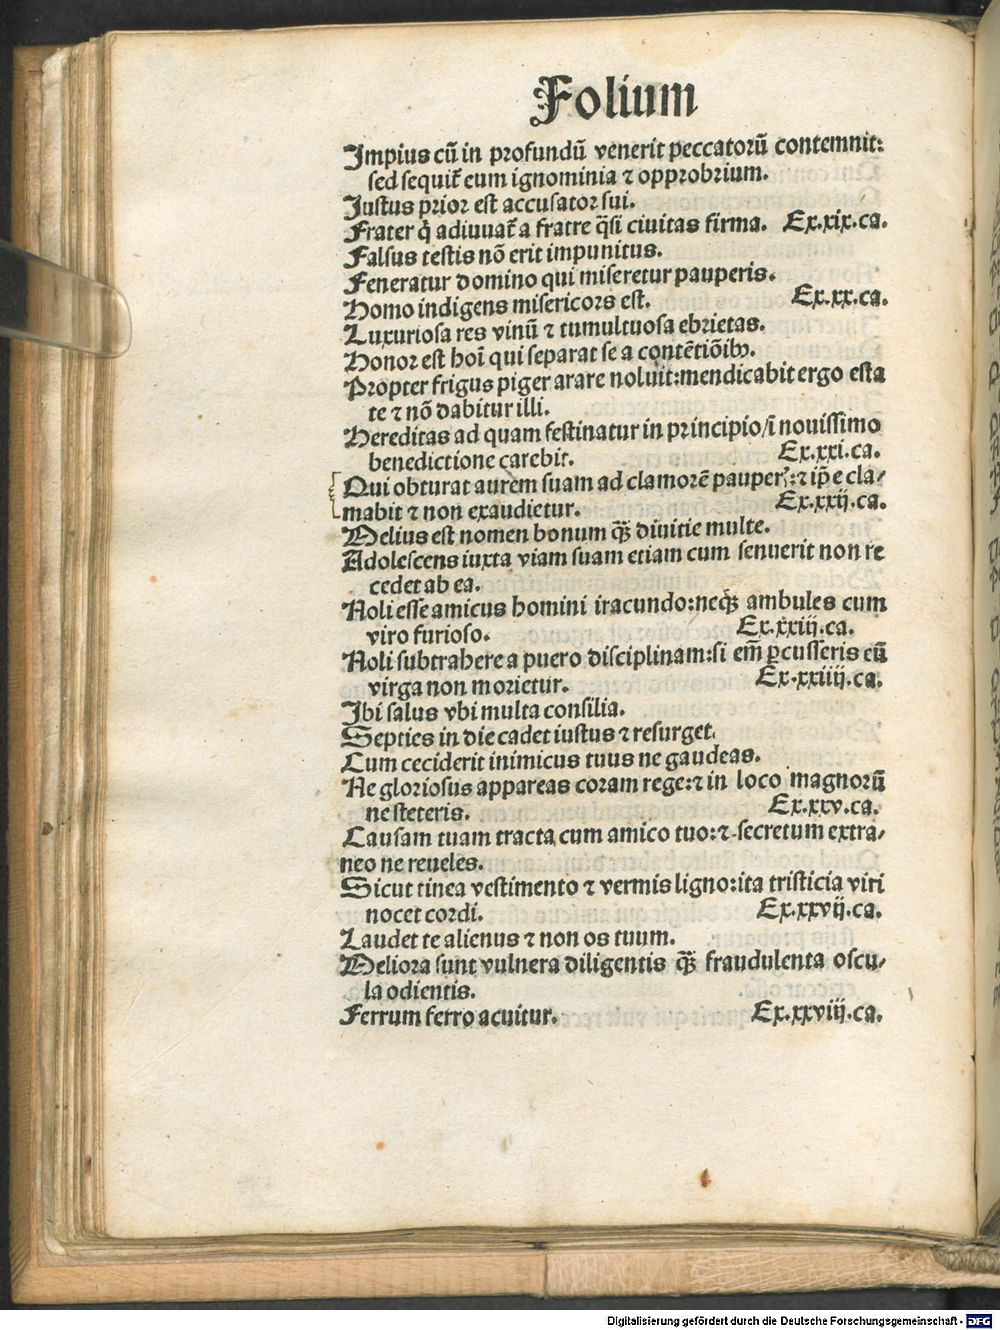 Folium
Impius cū in profundū venerit peccatorū contemnit:
sed sequit᷑ eum ignominia ⁊ opprobrium.
Iustus prior est accusator sui.
Frater q̇ adiuuat᷑ a fratre q̄si ciuitas firma. Ex.xix.ca.
Falsus testis nō erit impunitus.
Feneratur domino qui miseretur pauperis.
Homo indigens misericors est. Ex.xx.ca.
Luxuriosa res vinū ⁊ tumultuosa ebrietas.
Honor est hoī qui separat se a contētiōibꝰ.
Propter frigus piger arare noluit:mendicabit ergo esta
te ⁊ nō dabitur illi.
Hereditas ad quam festinatur in principio/ī nouissimo
benedictione carebit. Ex.xxi.ca.
Qui obturat aurem suam ad clamorē pauper᷑:⁊ ip̄e cla-
mabit ⁊ non exaudietur. Ex.xxij.ca.
Melius est nomen bonum q̄ꝫ diuitie multe.
Adolescens iuxta viam suam etiam cum senuerit non re
cedet ab ea.
Noli esse amicus homini iracundo:neq̄ꝫ ambules cum
viro furioso. Ex.xxiij.ca.
Noli subtrahere a puero disciplinam:si em̄ ꝑcusseris eū
virga non morietur. Ex.xxiiij.ca.
Ibi salus vbi multa consilia.
Septies in die cadet iustus ⁊ resurget.
Cum ceciderit inimicus tuus ne gaudeas.
Ne gloriosus appareas coram rege:⁊ in loco magnorū
ne steteris. Ex.xxv.ca.
Causam tuam tracta cum amico tuo:⁊ secretum extra-
neo ne reueles.
Sicut tinea vestimento ⁊ vermis ligno:ita tristicia viri
nocet cordi. Ex.xxvij.ca.
Laudet te alienus ⁊ non os tuum.
Meliora sunt vulnera diligentis q̄ꝫ fraudulenta oscu-
la odientis.
Ferrum ferro acuitur. Ex.xxviij.ca.
Digitalisierung gefördert durch die Deutsche Forschungsgemeinschaft - DFG